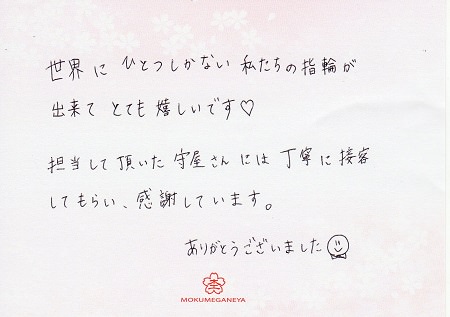 世界に ひとつしかない 私たちの指輪が
出来て とても嬉しいです♡
担当して頂いた 守屋さんには 丁寧に接客
してもらい、感謝しています。
ありがとうございました
MOKUMEGANEYA